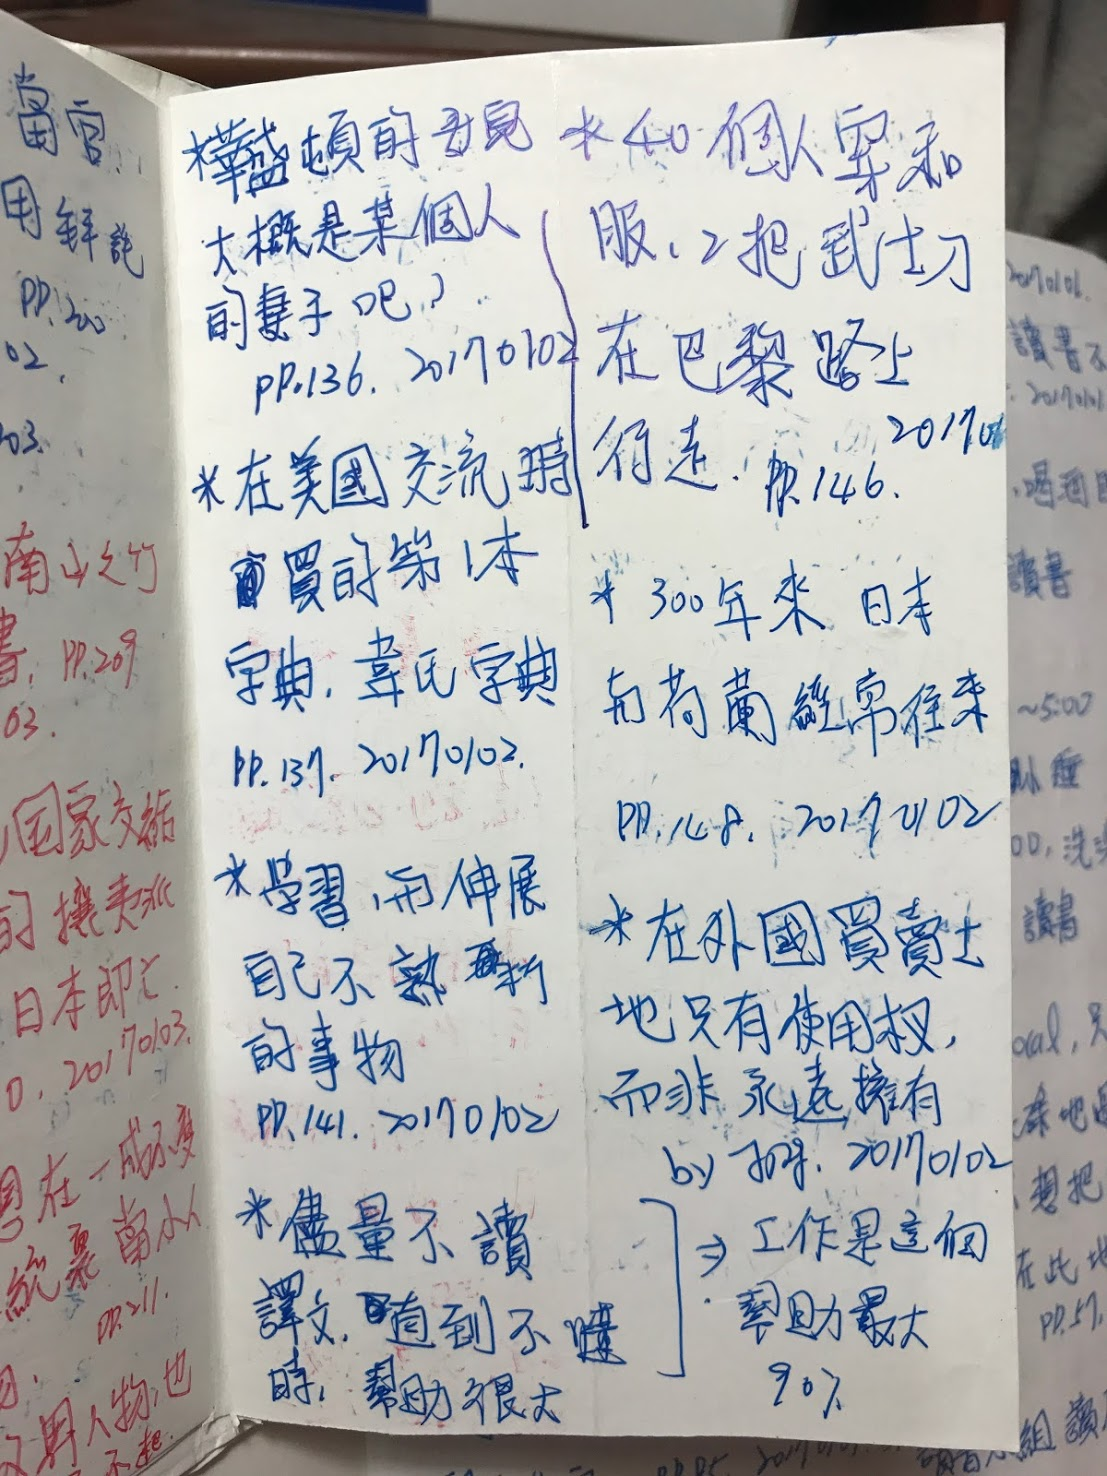 當官
用
PP.200
02.
203.
南山之竹
書, PP.209
03.
國家交結
的攘夷派
日本即亡.
0. 20170103.
思在一成不變
PP.211.
男人物,也
不起.
*華盛頓的
大概是某個人
的妻子吧?
PP.136. 20170102
*在美國交流時
買的第1本
字典, 韋氏字典
PP.137. 20170102.
*学習,而伸展
自己不熟
的事物
PP.141. 20170102
*儘量不讀
譯文, 直到不懂
時, 幫助很大
*40個人穿和
服、2把武士刀
在巴黎路上
行走. PP.146. 201701
*300年來 日本
與荷蘭經常往來
PP.148. 20170102
*在外國買賣土
地只有使用权,
而非永遠擁有
by 20170102
⇒ 工作是這個
幫助最大
90%
20170101.
讀書不
. 20170101
,喝酒
讀書
~5:00
睡
00, 洗
讀書
ocal, 只
想把
在此地
PP.57.